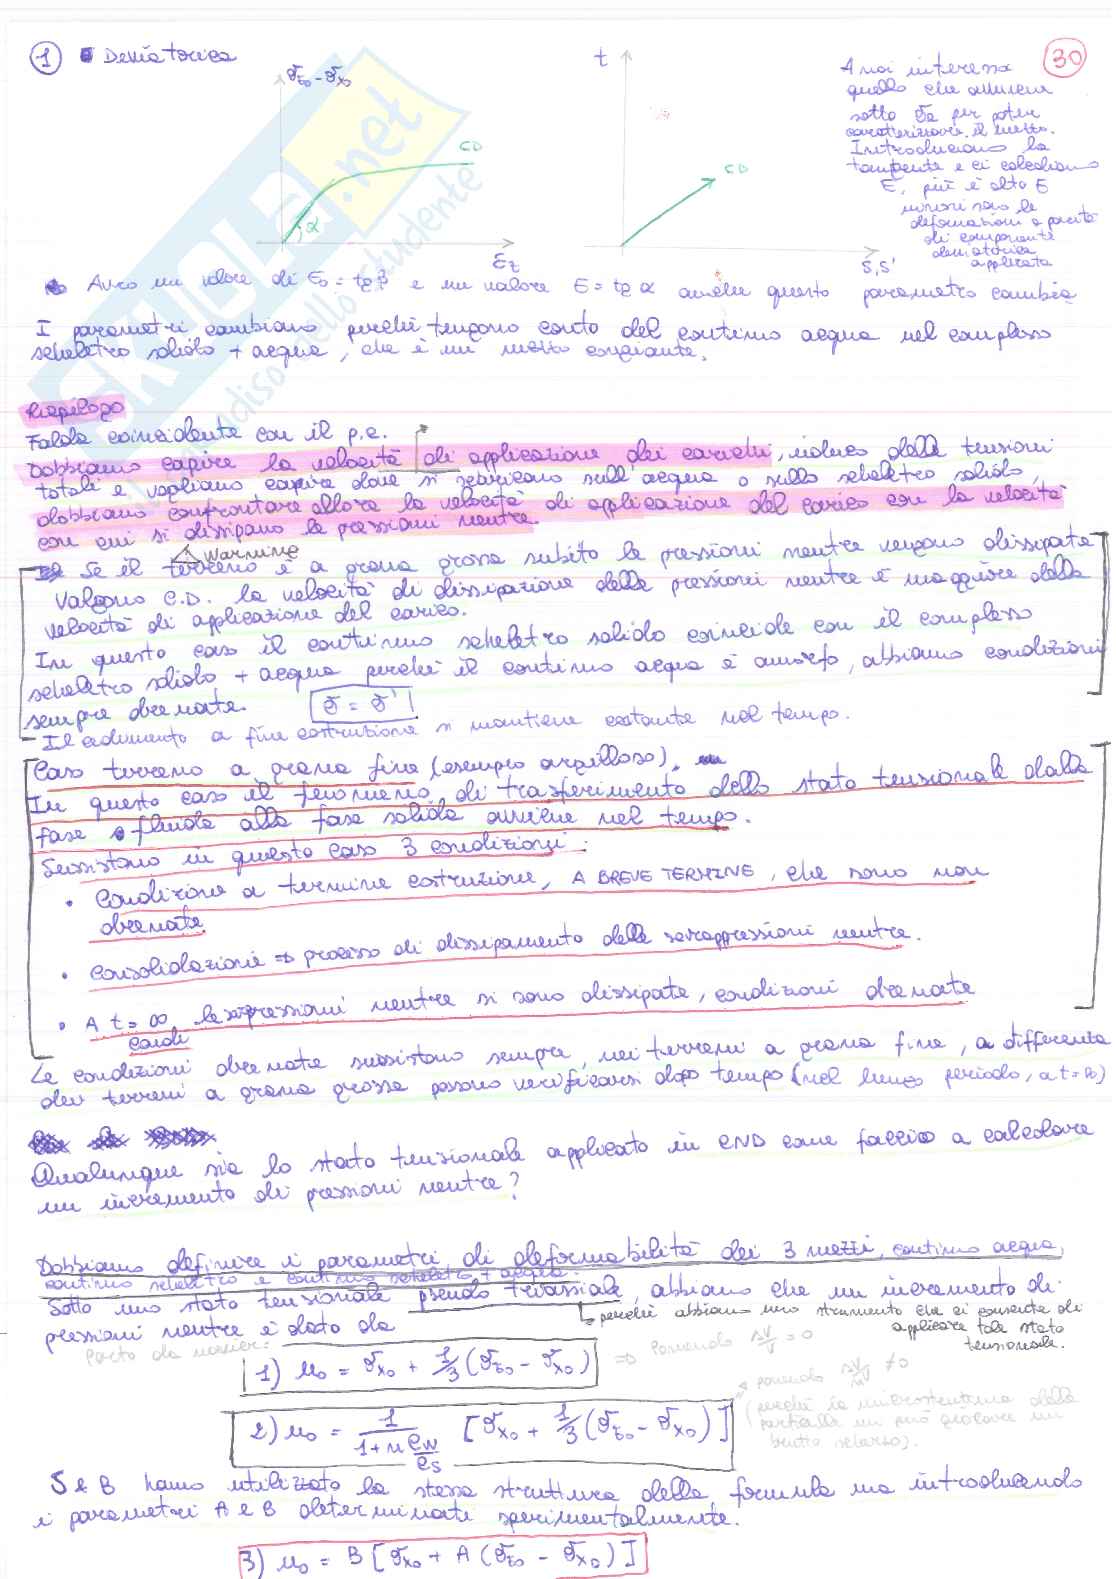 1 Deviatorica
30
σz0 - σx0
CD
α
εz
t
CD
s, s'
A noi interessa
quello che avviene
sotto σa per poter
caratterizzare il mezzo.
Introduciamo la
tangente e ci calcoliamo
E, più è alto E
minori sono le
deformazioni a parità
di componente
deviatorica
applicata
Avrò un valore di E0 = tg β e un valore E = tg α anche questo parametro cambia
I parametri cambiano perché tengono conto del continuo acqua nel complesso
scheletro solido + acqua, che è un mezzo cangiante.
Riepilogo
Falda coincidente con il p.c.
Dobbiamo capire la velocità di applicazione dei carichi, induco delle tensioni
totali e vogliamo capire dove si scaricano sull'acqua o sullo scheletro solido,
dobbiamo confrontare allora la velocità di applicazione del carico con la velocità
con cui si dissipano le pressioni neutre.
Warning
Se il terreno è a grana grossa subito le pressioni neutre vengono dissipate
Valgono C.D. la velocità di dissipazione delle pressioni neutre è maggiore della
velocità di applicazione del carico.
In questo caso il continuo scheletro solido coincide con il complesso
scheletro solido + acqua perché il continuo acqua è amorfo, abbiamo condizioni
sempre drenate. σ = σ'
Il cedimento a fine costruzione si mantiene costante nel tempo.
Caso terreno a grana fine (esempio argilloso),
In questo caso il fenomeno di trasferimento dello stato tensionale dalla
fase fluida alla fase solida avviene nel tempo.
Sussistono in questo caso 3 condizioni:
• Condizione a termine costruzione, A BREVE TERMINE, che sono non
drenate.
• Consolidazione ⇒ processo di dissipamento delle sovrappressioni neutre.
• A t = ∞ le sovrapressioni neutre si sono dissipate, condizioni drenate
Le condizioni drenate sussistono sempre, nei terreni a grana fine, a differenza
dei terreni a grana grossa possono verificarsi dopo tempo (nel lungo periodo, a t = ∞)
Qualunque sia lo stato tensionale applicato in CND come faccio a calcolare
un incremento di pressioni neutre?
Dobbiamo definire i parametri di deformabilità dei 3 mezzi, continuo acqua,
continuo scheletro e continuo scheletro + acqua.
Sotto uno stato tensionale pseudo triassiale, abbiamo che un incremento di
perché abbiamo uno strumento che ci consente di
applicare tale stato
tensionale.
pressioni neutre è dato da
1) u0 = σx0 + 1/3 (σz0 - σx0)
⇒ Ponendo ΔV/V = 0
2) u0 = 1/(1 + n Cw/Cs) [σx0 + 1/3 (σz0 - σx0)]
ponendo ΔV/V ≠ 0
(perché la microstruttura della
particella mi può giocare un
brutto scherzo).
S & B hanno utilizzato la stessa struttura della formula ma introducendo
i parametri A e B determinati sperimentalmente.
3) u0 = B [σx0 + A (σz0 - σx0)]
SKUOLA.net